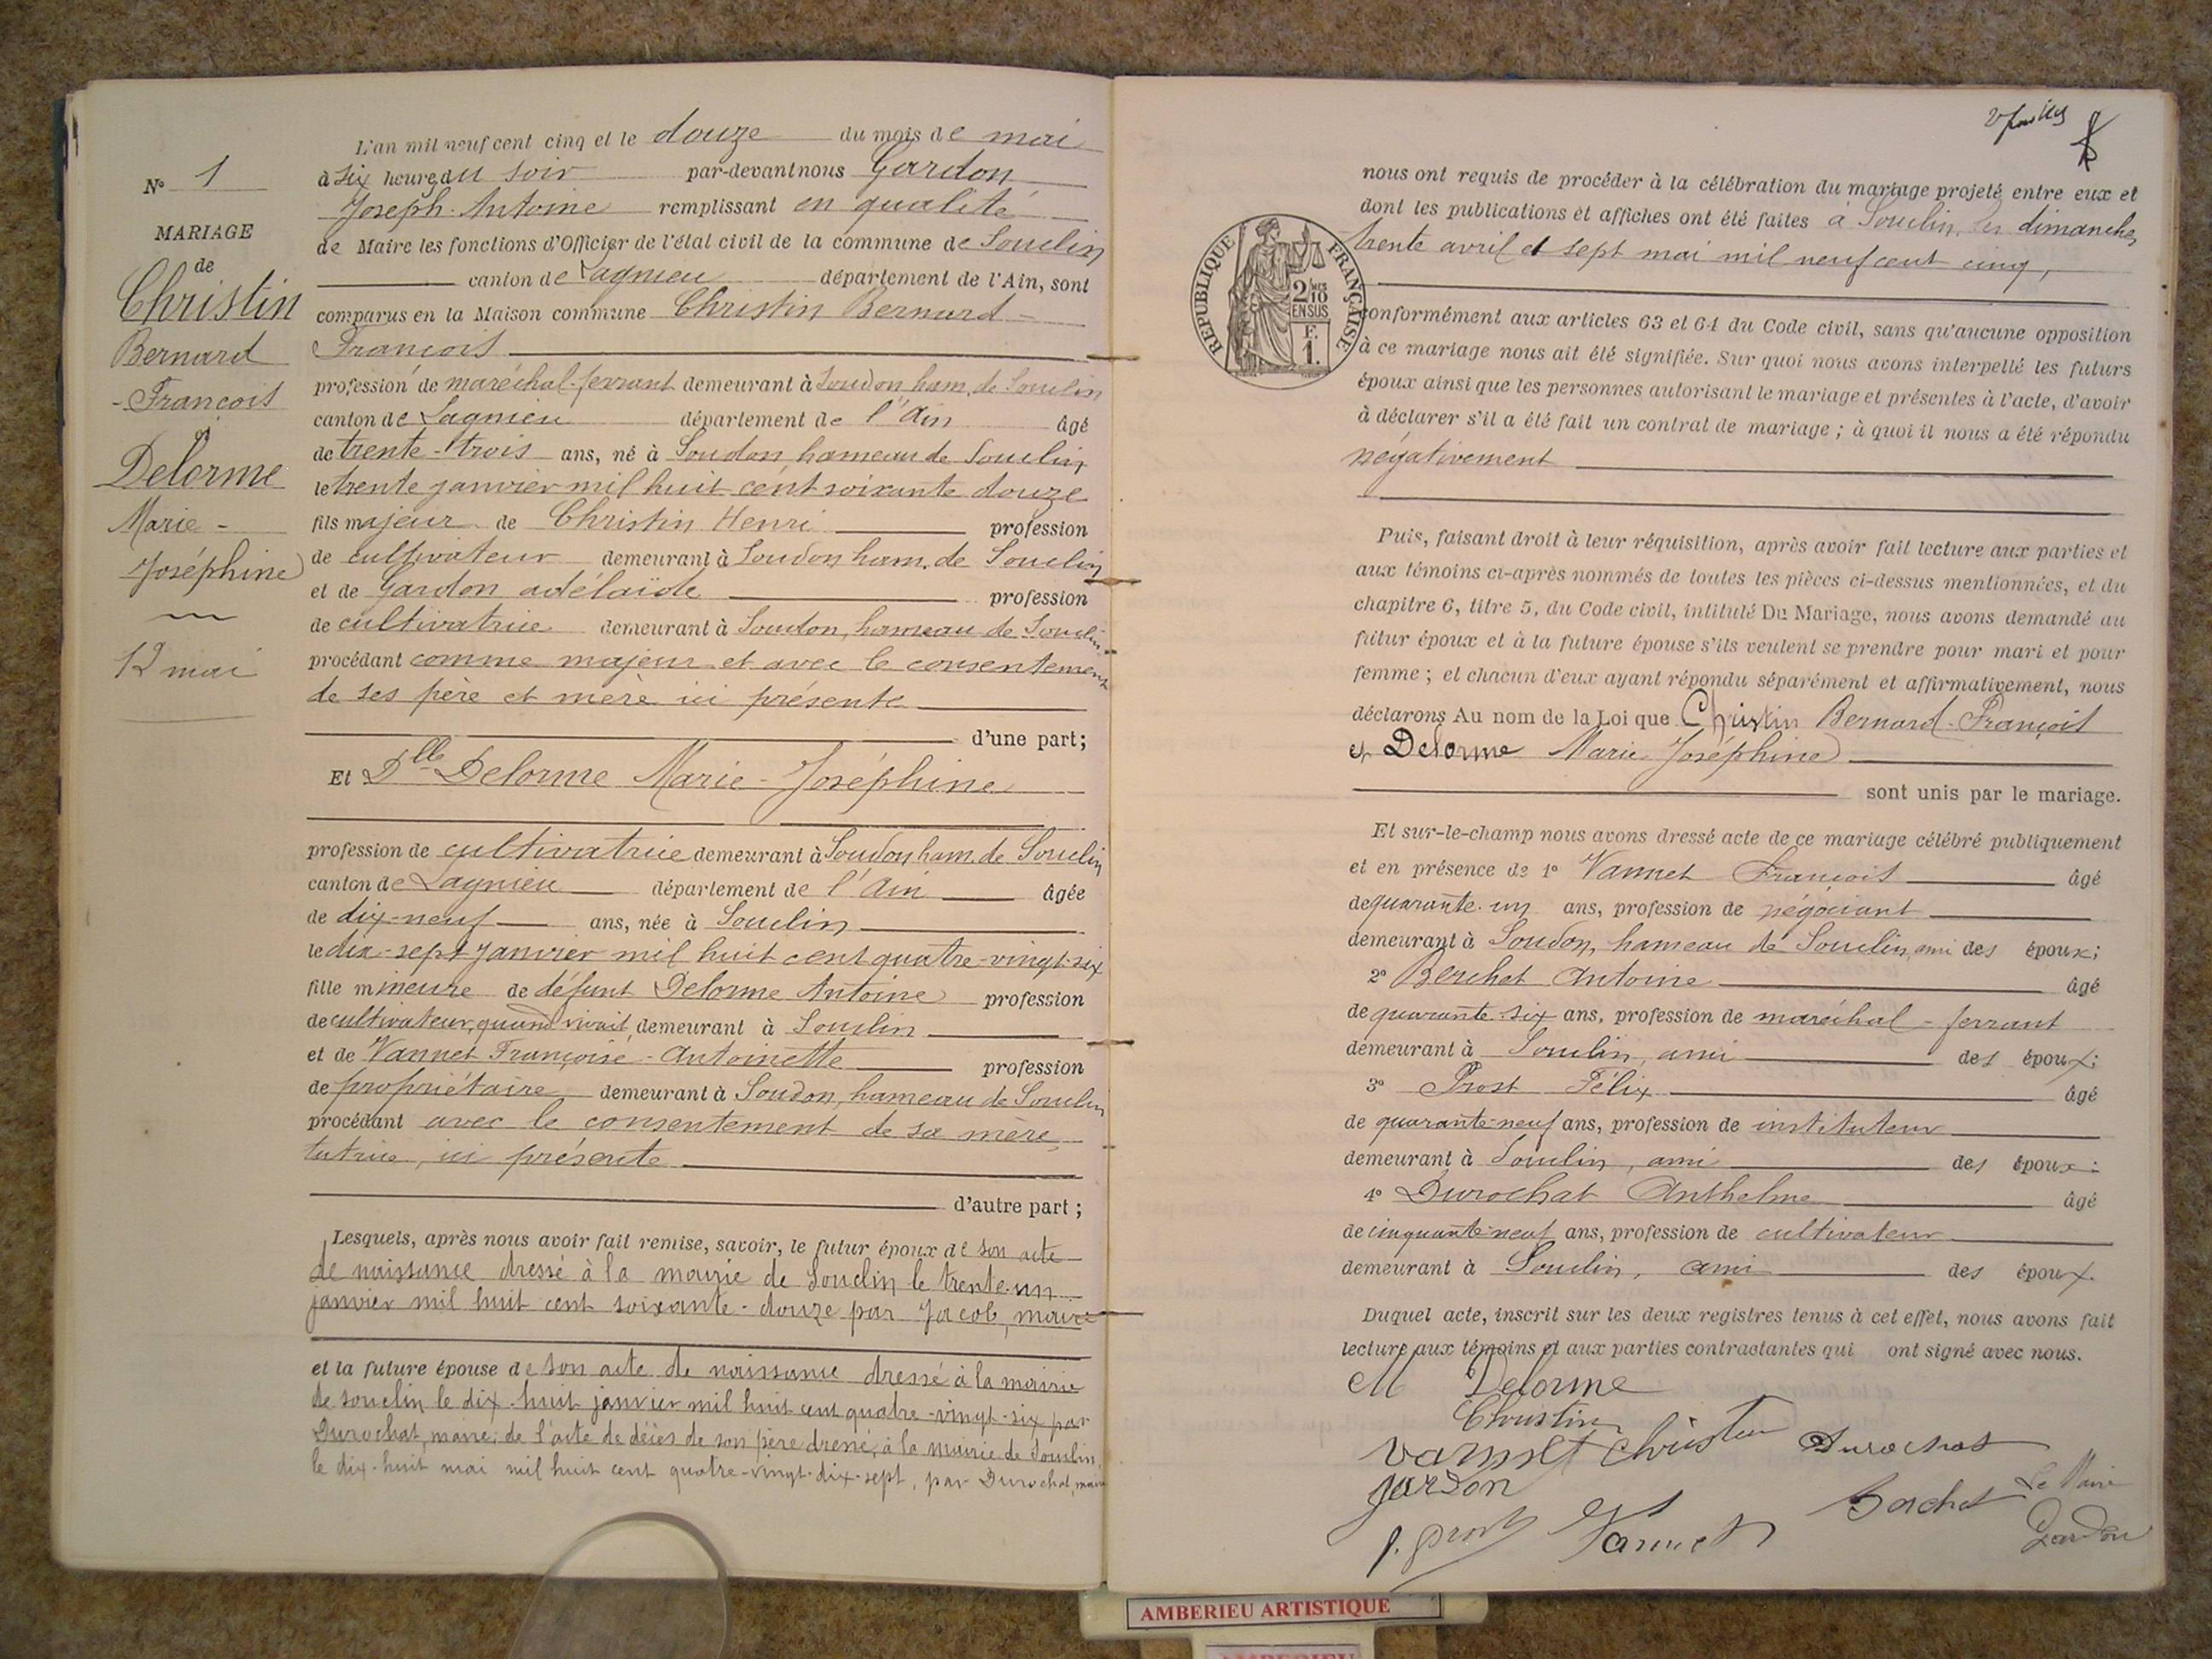 N° 1
MARIAGE
de
Christin
Bernard
-François
&
Delorme
Marie-
Joséphine
12 mai
L'an mil neuf cent cinq et le douze du mois de mai
à six heures du soir par-devant nous Gardon
Joseph-Antoine remplissant en qualité
de Maire les fonctions d'Officier de l'état civil de la commune de Souclin
canton de Lagnieu département de l'Ain, sont
comparus en la Maison commune Christin Bernard-
François
profession de maréchal-ferrant demeurant à Soudon ham. de Souclin
canton de Lagnieu département de l'Ain âgé
de trente-trois ans, né à Soudon hameau de Souclin
le trente janvier mil huit cent soixante douze
fils majeur de Christin Henri profession
de cultivateur demeurant à Soudon ham. de Souclin
et de Gardon adélaïde profession
de cultivatrice demeurant à Soudon, hameau de Souclin
procédant comme majeur et avec le consentement
de ses père et mère ici présents
d'une part;
Et Dlle Delorme Marie-Joséphine
profession de cultivatrice demeurant à Soudon ham. de Souclin
canton de Lagnieu département de l'Ain âgée
de dix-neuf ans, née à Souclin
le dix-sept janvier mil huit cent quatre-vingt-six
fille mineure de défunt Delorme Antoine profession
de cultivateur, quand vivait, demeurant à Souclin
et de Vannet Françoise-Antoinette profession
de propriétaire demeurant à Soudon, hameau de Souclin
procédant avec le consentement de sa mère
tutrice, ici présente
d'autre part;
Lesquels, après nous avoir fait remise, savoir, le futur époux de son acte
de naissance dressé à la mairie de Souclin le trente-un
janvier mil huit cent soixante-douze par Jacob, maire
et la future épouse de son acte de naissance dressé à la mairie
de Souclin le dix-huit janvier mil huit cent quatre-vingt-six par
Durochat, maire; de l'acte de décès de son père dressé, à la mairie de Souclin,
le dix-huit mai mil huit cent quatre-vingt-dix-sept, par Durochat, maire
RÉPUBLIQUE FRANÇAISE
2/10 EN SUS
F. 1.
nous ont requis de procéder à la célébration du mariage projeté entre eux et
dont les publications et affiches ont été faites à Souclin, les dimanches
trente avril et sept mai mil neuf cent cinq,
conformément aux articles 63 et 64 du Code civil, sans qu'aucune opposition
à ce mariage nous ait été signifiée. Sur quoi nous avons interpellé les futurs
époux ainsi que les personnes autorisant le mariage et présentes à l'acte, d'avoir
à déclarer s'il a été fait un contrat de mariage; à quoi il nous a été répondu
négativement
Puis, faisant droit à leur réquisition, après avoir fait lecture aux parties et
aux témoins ci-après nommés de toutes les pièces ci-dessus mentionnées, et du
chapitre 6, titre 5, du Code civil, intitulé Du Mariage, nous avons demandé au
futur époux et à la future épouse s'ils veulent se prendre pour mari et pour
femme; et chacun d'eux ayant répondu séparément et affirmativement, nous
déclarons Au nom de la Loi que Christin Bernard-François
et Delorme Marie Joséphine
sont unis par le mariage.
Et sur-le-champ nous avons dressé acte de ce mariage célébré publiquement
et en présence de 1° Vannet François âgé
de quarante-un ans, profession de négociant
demeurant à Soudon, hameau de Souclin, ami des époux;
2° Berchet Antoine âgé
de quarante-six ans, profession de maréchal-ferrant
demeurant à Souclin, ami des époux;
3° Prost Félix âgé
de quarante-neuf ans, profession de instituteur
demeurant à Souclin, ami des époux;
4° Durochat Anthelme âgé
de cinquante-neuf ans, profession de cultivateur
demeurant à Souclin, ami des époux.
Duquel acte, inscrit sur les deux registres tenus à cet effet, nous avons fait
lecture aux témoins et aux parties contractantes qui ont signé avec nous.
M Delorme
Christin
Vannet Christin Durochat
gardon Berchet Le Maire
f. Prost Vannet Gardon
AMBERIEU ARTISTIQUE
AMBERIEU